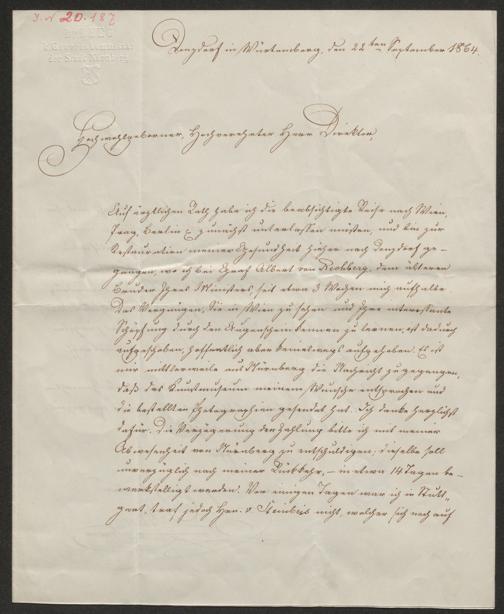 J. N. 20.187
der Stadt Nürnberg
Donzdorf in Würtemberg, den 22ten September 1864.
Hochwohlgeborner, Hochverehrter Herr Direktor,
Auf ärztlichen Rath habe ich die beabsichtigte Reise nach Wien,
Prag, Berlin zunächst unterlassen müssen, und bin zur
Restauration meiner Gesundheit hieher nach Donzdorf ge-
gangen, wo ich bei Graf Albert von Rechberg, dem älteren
Bruder Ihres Ministers, seit etwa 3 Wochen mich aufhalte.
Das Vergnügen, Sie in Wien zu sehen und Ihre interessante
Schöpfung durch den Augenschein kennen zu lernen, ist dadurch
aufgeschoben, hoffentlich aber keineswegs aufgehoben. Es ist
mir mittlerweile aus Nürnberg die Nachricht zugegangen,
daß das Kunstmuseum meinem Wunsche entsprochen und
die bestellten Photographien gesendet hat. Ich danke herzlichst
dafür. Die Verzögerung der Zahlung bitte ich mit meiner
Abwesenheit von Nürnberg zu entschuldigen; dieselbe soll
unverzüglich nach meiner Rückkehr, – in etwa 14 Tagen be-
werkstelligt werden. Vor einigen Tagen war ich in Stutt-
gart, traf jedoch Hrn. v Steinbeis nicht, welcher sich noch auf